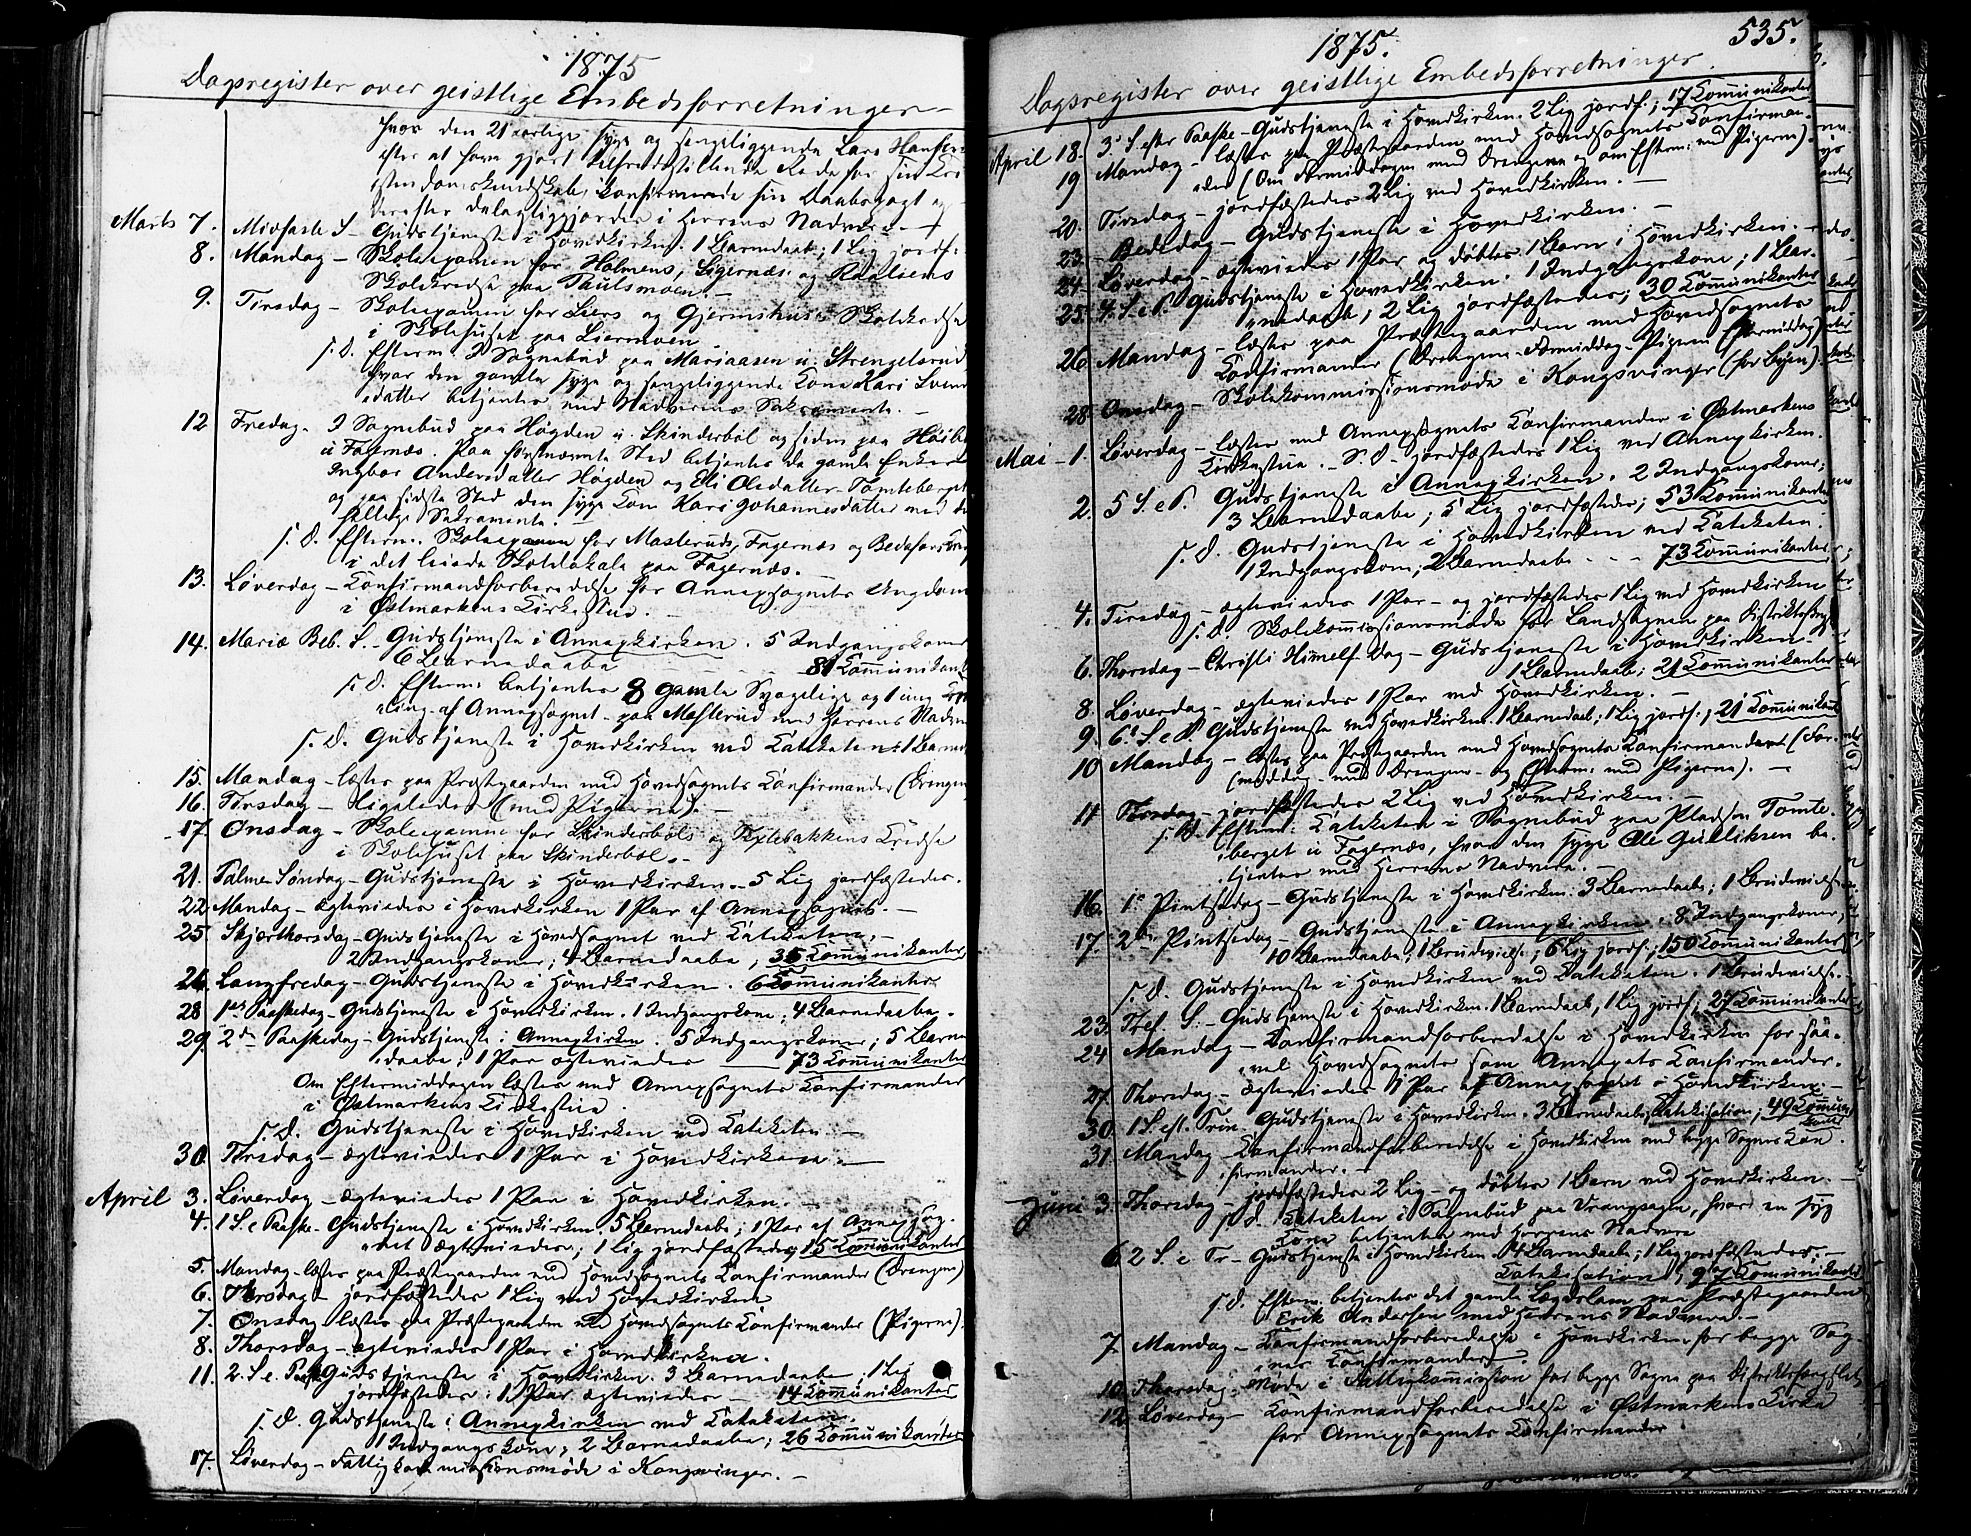 1875
Dagsregister over geistlige Embedsforretninger
hvor den 21 aarlige syge og sengeliggende Lars Hansen
efter at have gjort tilfredsstillende Rede for sin Kri
stendomskundskab, konfirmerede sin Daabspagt og
derefter delagtiggjordes i Herrens Nadvere.
Marts 7. Midfaste S. – Gudstjeneste i Hovedkirken. 1 Barnedaab; 1 Lig jordf.
8. Mandag – Skoleexamen for Holmens, Sigernæs og
Skolekreds paa Paulsmoen. –
9. Tirsdag – Skoleexamen for Liers og Gjermshus's Skolekreds
i Skolehuset paa Liermoen
s. D. Efterm. I Sognebud paa Marjaasen u. Strengelsrud
hvor den gamle syge og sengeliggende Kone Kari Svend
sdatter betjentes med Nadverens Sakramente. –
12 Fredag. I Sognebud paa Høgden u. Skinderböl og siden paa
u Fagernæs. Paa førstnævnte Sted betjentes de gamle Enker
Ingebor Andersdatter Høgden og Eli Olsdatter Tomteberget
og paa sidste Sted den syge Kone Kari Johannesdatter med det
hellige Sakramente. –
s. D. Efterm. Skoleexamen for Masteruds, Fagernæs og
i det leiede Skolelokale paa Fagernæs. –
13. Løverdag – Confirmandforberedelse for Annexsognets Ungdom
i Østmarkens Kirkestue. –
14. Mariæ Beb. S. – Gudstjeneste i Annexkirken. 5 Indgangskoner
6 Barnedaabe 81 Kommunikanter
s. D. Efterm. betjentes 8 gamle Svagelige og 1 ung
ling af Annexsognet paa Masterud med Herrens Nadvere
s. D. Gudstjeneste i Hovedkirken ved Kateketen. 1 Barned.
15. Mandag – læstes paa Præstegaarden med Hovedsognets Confirmander (Drengene
16. Tirsdag – Ligeledes (med Pigerne). –
17. Onsdag – Skoleexamen for Skinderböls og Kredse
i Skolehuset paa Skinderböl. –
21. Palme-Søndag – Gudstjeneste i Hovedkirken. – 5 Lig jordfæstedes.
22 Mandag – ægteviedes i Hovedkirken 1 Par af Annexsognet. –
25 Skjærthorsdag – Gudstjeneste i Hovedsognet ved Kateketen. –
2 Indgangskoner; 4 Barnedaabe; 35 Kommunikanter
26. Langfredag – Gudstjeneste i Hovedkirken. 6 Kommunikanter
28 1ste Paaskedag – Gudstjeneste i Hovedkirken. 1 Indgangskone; 4 Barnedaabe. –
29. 2den Paaskedag – Gudstjeneste i Annexkirken. 5 Indgangskoner; 5 Barne
daabe; 1 Par ægteviedes 73 Kommunikanter
Om Eftermiddagen læstes med Annexsognets Confirmander
i Østmarkens Kirkestue.
s. D. Gudstjeneste i Hovedkirken ved Kateketen. –
30 Tirsdag – ægteviedes 1 Par i Hovedkirken. –
April 3. Løverdag – ægteviedes 1 Par i Hovedkirken. –
4. 1 S. e. Paaske. Gudstjeneste i Hovedkirken. 5 Barnedaabe; 1 Par af Annexsog-
net ægteviedes; 1 Lig jordfæstedes; 15 Kommunikanter
5. Mandag – læstes paa Præstegaarden med Hovedsognets Confirmander (Drengene)
6. Tirsdag – jordfæstedes 1 Lig ved Hovedkirken
7. Onsdag læstes paa Præstegaarden med Hovedsognets Confirmander (Pigerne).
8. Thorsdag – ægteviedes 1 Par i Hovedkirken.
11. 2. S. e. Paaske Gudstjeneste i Hovedkirken. 3 Barnedaabe; 1 Lig
jordfæstedes; 1 Par ægteviedes – 14 Kommunikanter
s. D. Gudstjeneste i Annexkirken ved Kateketen.
1 Indgangskone; 2 Barnedaabe; 26 Kommunikanter
17. Løverdag – Fattigkommissionsmøde i Kongsvinger. –
1875. 535.
Dagsregister over geistlige Embedsforretninger.
April 18. 3die S. efter Paaske – Gudstjeneste i Hovedkirken. 2 Lig jordf.; 17 Kommunikanter
19 Mandag – læstes paa Præstegaarden med Hovedsognets Confirman-
der (Om Formiddagen med Drengene og om Efterm. med Pigerne).
20. Tirsdag – jordfæstedes 2 Lig ved Hovedkirken. –
23. Bededag – Gudstjeneste i Hovedkirken. –
24 Løverdag – ægteviedes 1 Par og döbtes 1 Barn i Hovedkirken. –
25. 4. S. e. P. Gudstjeneste i Hovedkirken. 1 Indgangskone; 1 Bar-
nedaab; 2 Lig jordfæstedes; 30 Kommunikanter
26. Mandag – læstes paa Præstegaarden med Hovedsognets
Confirmander (Drengene Formiddag – Pigerne Eftermiddag)
28 Onsdag – Skolekommissionsmøde i Kongsvinger (for Byen)
Mai – 1. Løverdag – læstes med Annexsognets Confirmander i Østmarkens
Kirkestue. – S. D. jordfæstedes 1 Lig ved Annexkirken.
2. 5 S. e. P. Gudstjeneste i Annexkirken. 2 Indgangskoner;
3 Barnedaabe; 5 Lig jordfæstedes; 53 Kommunikanter
s. D. Gudstjeneste i Hovedkirken ved Kateketen.
1 Indgangskone; 2 Barnedaabe – – 73 Kommunikanter
4. Tirsdag – ægteviedes 1 Par – og jordfæstedes 1 Lig ved Hovedkirken
s. D. Skolekommissionsmøde for Landsognene paa
6. Thorsdag – Christi Himmelf. Dag – Gudstjeneste i Hovedkirken –
1 Barnedaab; 21 Kommunikanter
8 Løverdag – ægteviedes 1 Par ved Hovedkirken. –
9. 6te S. e. P. Gudstjeneste ved Hovedkirken. 1 Barnedaab; 1 Lig jordf.; 21 Kommunikant
10 Mandag – læstes paa Præstegaarden med Hovedsognets Confirmander (For-
middag med Drengene og Efterm. med Pigerne). –
11 Tirsdag – jordfæstedes 2 Lig ved Hovedkirken. –
s. D. Efterm. Kateketen i Sognebud paa Pladsen Tomte-
berget u Fagernæs, hvor den syge Ole Gulliksen be-
tjentes med Herrens Nadvere. –
16. 1ste Pintsedag – Gudstjeneste i Hovedkirken. 3 Barnedaabe; 1 Brudevielse
17. 2den Pintsedag – Gudstjeneste i Annexkirken. 8 Indgangskoner;
10 Barnedaabe; 1 Brudevielse; 6 Lig jordf.; 150 Kommunikanter
s. D. Gudstjeneste i Hovedkirken ved Kateketen. 1 Brudevielse. –
23. Tref. S. – Gudstjeneste i Hovedkirken. 1 Barnedaab, 1 Lig jordf.; 27 Kommunikanter
24 Mandag – Confirmandforberedelse i Hovedkirken for saa-
vel Hovedsognets som Annexets Confirmander.
27. Thorsdag – ægteviedes 1 Par af Annexsognet i Hovedkirken. –
30. 1 S. eft. Trin. Gudstjeneste i Hovedkirken. 3 Barnedaabe; Katekisation; 49 Kommuni
kanter
31. Mandag – Confirmandforberedelse i Hovedkirken med begge Sognes Con-
firmander. –
Juni 3. Thorsdag – jordfæstedes 2 Lig – og döbtes 1 Barn ved Hovedkirken. –
s. d. Kateketen i Sognebud paa Vrangsagen, hvor en syg
Kone betjentes med Herrens Nadvere
6. 2 S. e. Tr – Gudstjeneste i Hovedkirken. 4 Barnedaabe; 1 Lig jordfæstedes. –
Katekisation, 97 Kommunikanter
s. d. Efterm. betjentes det gamle Lægdslem paa Præstegaarden
Erik Andersen med Herrens Nadvere. –
7. Mandag – Confirmandforberedelse i Hovedkirken for begge Sog-
nes Confirmander. –
10. Thorsdag – Møde i Fattigkommission for begge Sogne paa Distriktsfængslet
12. Løverdag – Confirmandforberedelse i Østmarkens Kirke
for Annexsognets Confirmander